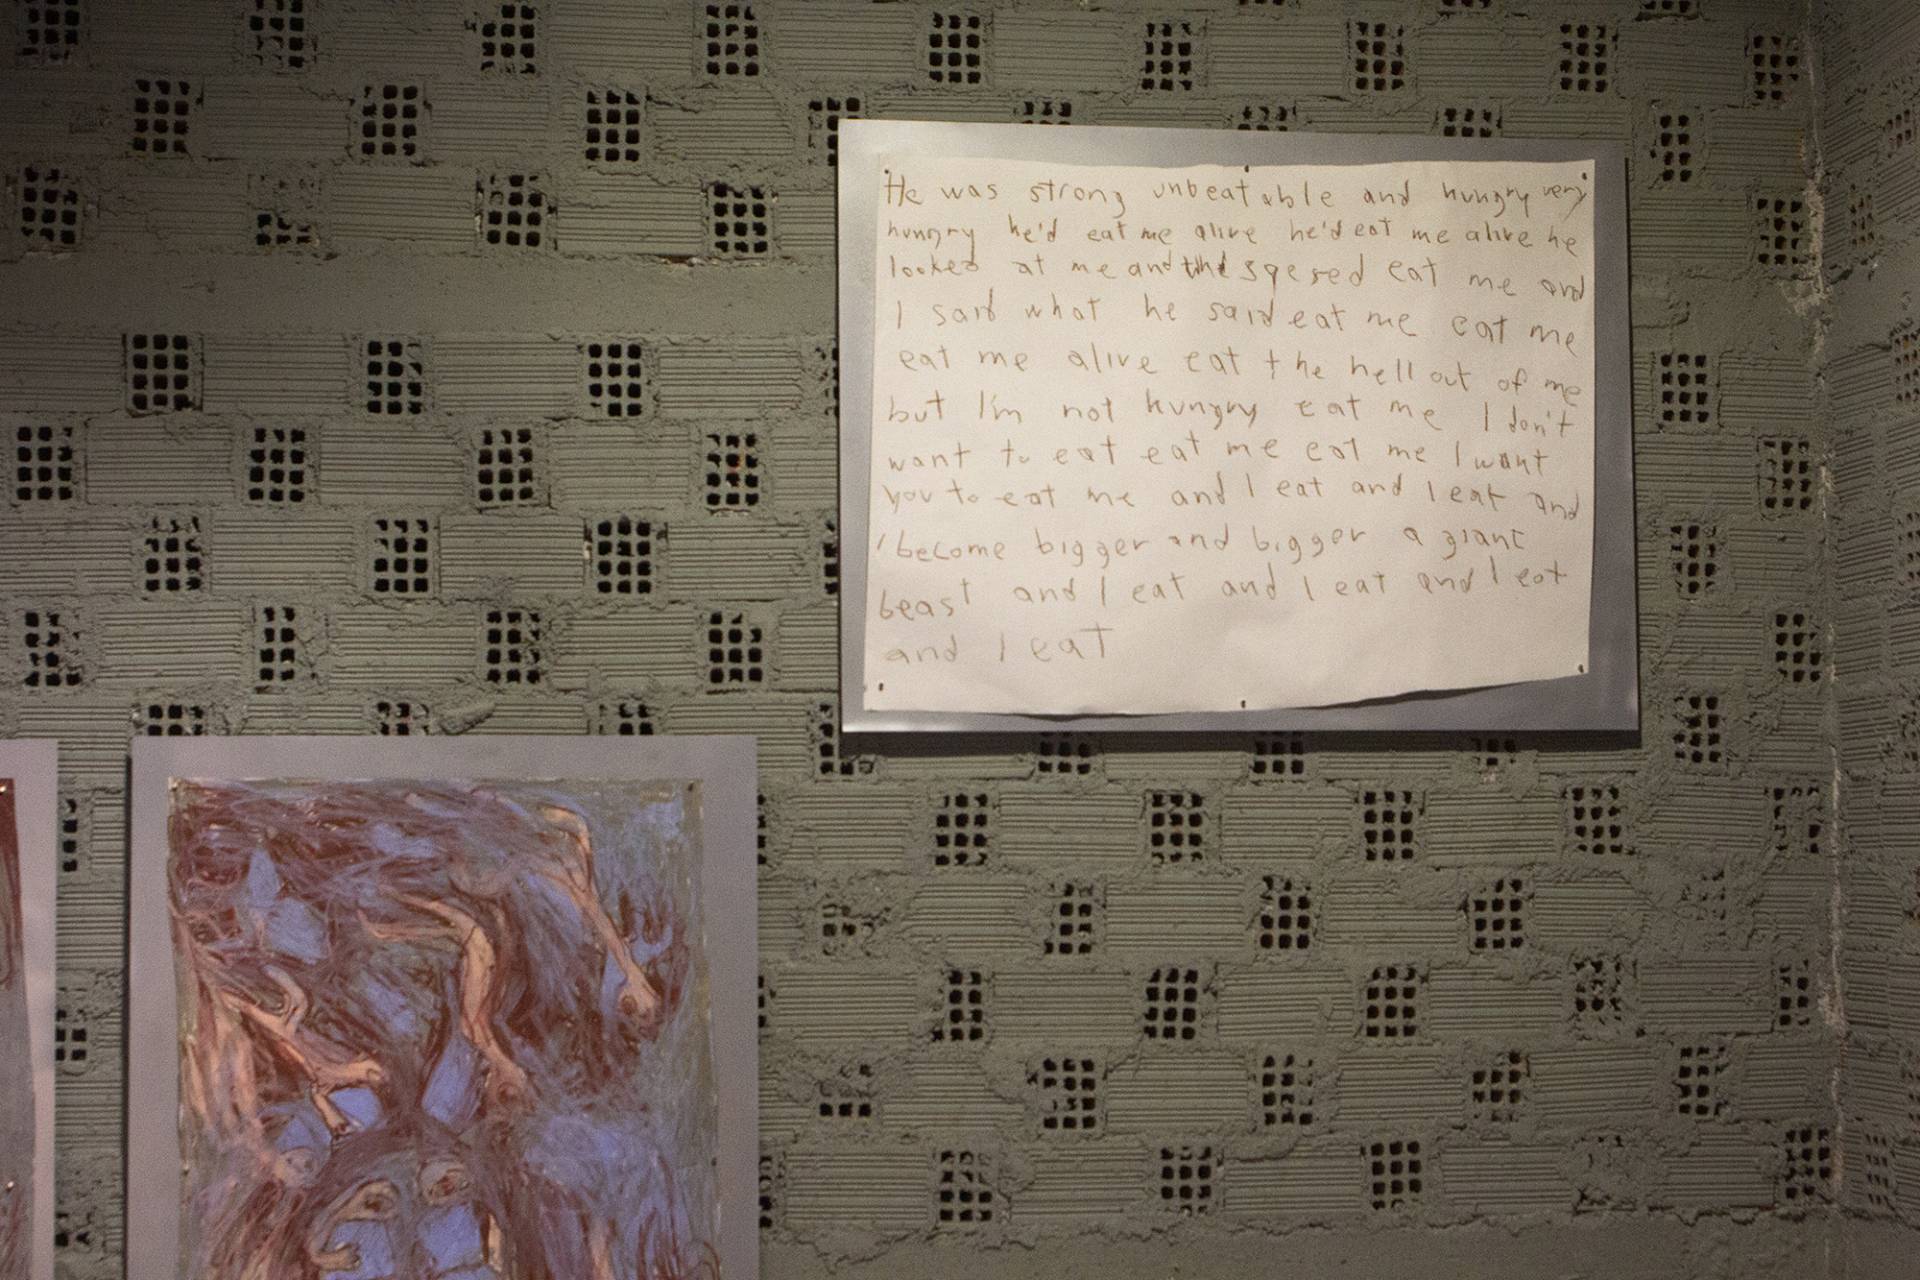 He was strong unbeatable and hungry very
hungry he'd eat me alive he'd eat me alive he
looked at me and eat me and
I said what he said eat me eat me
eat me alive eat the hell out of me
but I'm not hungry eat me I don't
want to eat eat me eat me I want
you to eat me and I eat and I eat and
I become bigger and bigger a giant
beast and I eat and I eat and I eat
and I eat